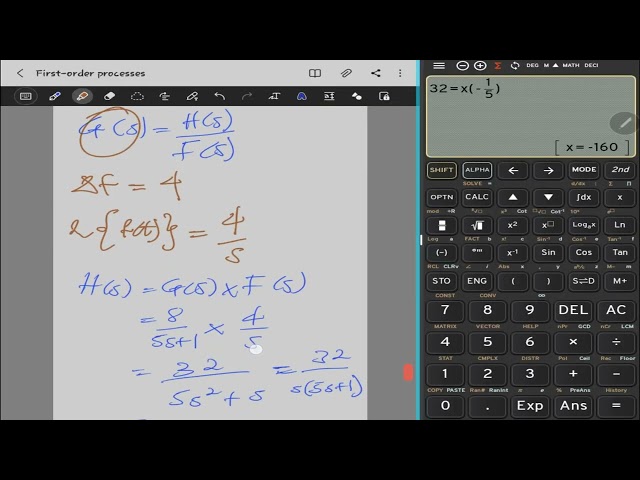 First-order processes
G(s) = H(s) / F(s)
Δf = 4
L{f(t)} = 4 / s
H(s) = G(s) x F(s)
= 8 / 5s+1 x 4 / s
= 32 / 5s² + s = 32 / s(5s+1)
Σ DEG M ▲ MATH DECI
32=x(-1/5)
[ x=-160 ]
SHIFT ALPHA ← → MODE 2nd
SOLVE =
OPTN CALC ▲ ▼ ∫dx x
√x x² x⁻¹ Log₈x Ln
(-) °'" x³ Sin Cos Tan
RCL CLRv
STO ENG ( ) S⇌D M+
CONST CONV
7 8 9 DEL AC
MATRIX VECTOR nPr GCD nCr LCM
4 5 6 × ÷
STAT CMPLX DISTR Pol Ceil Rec Floor
1 2 3 + −
COPY PASTE Ran# RanInt π e PreAns History
0 . Exp Ans =